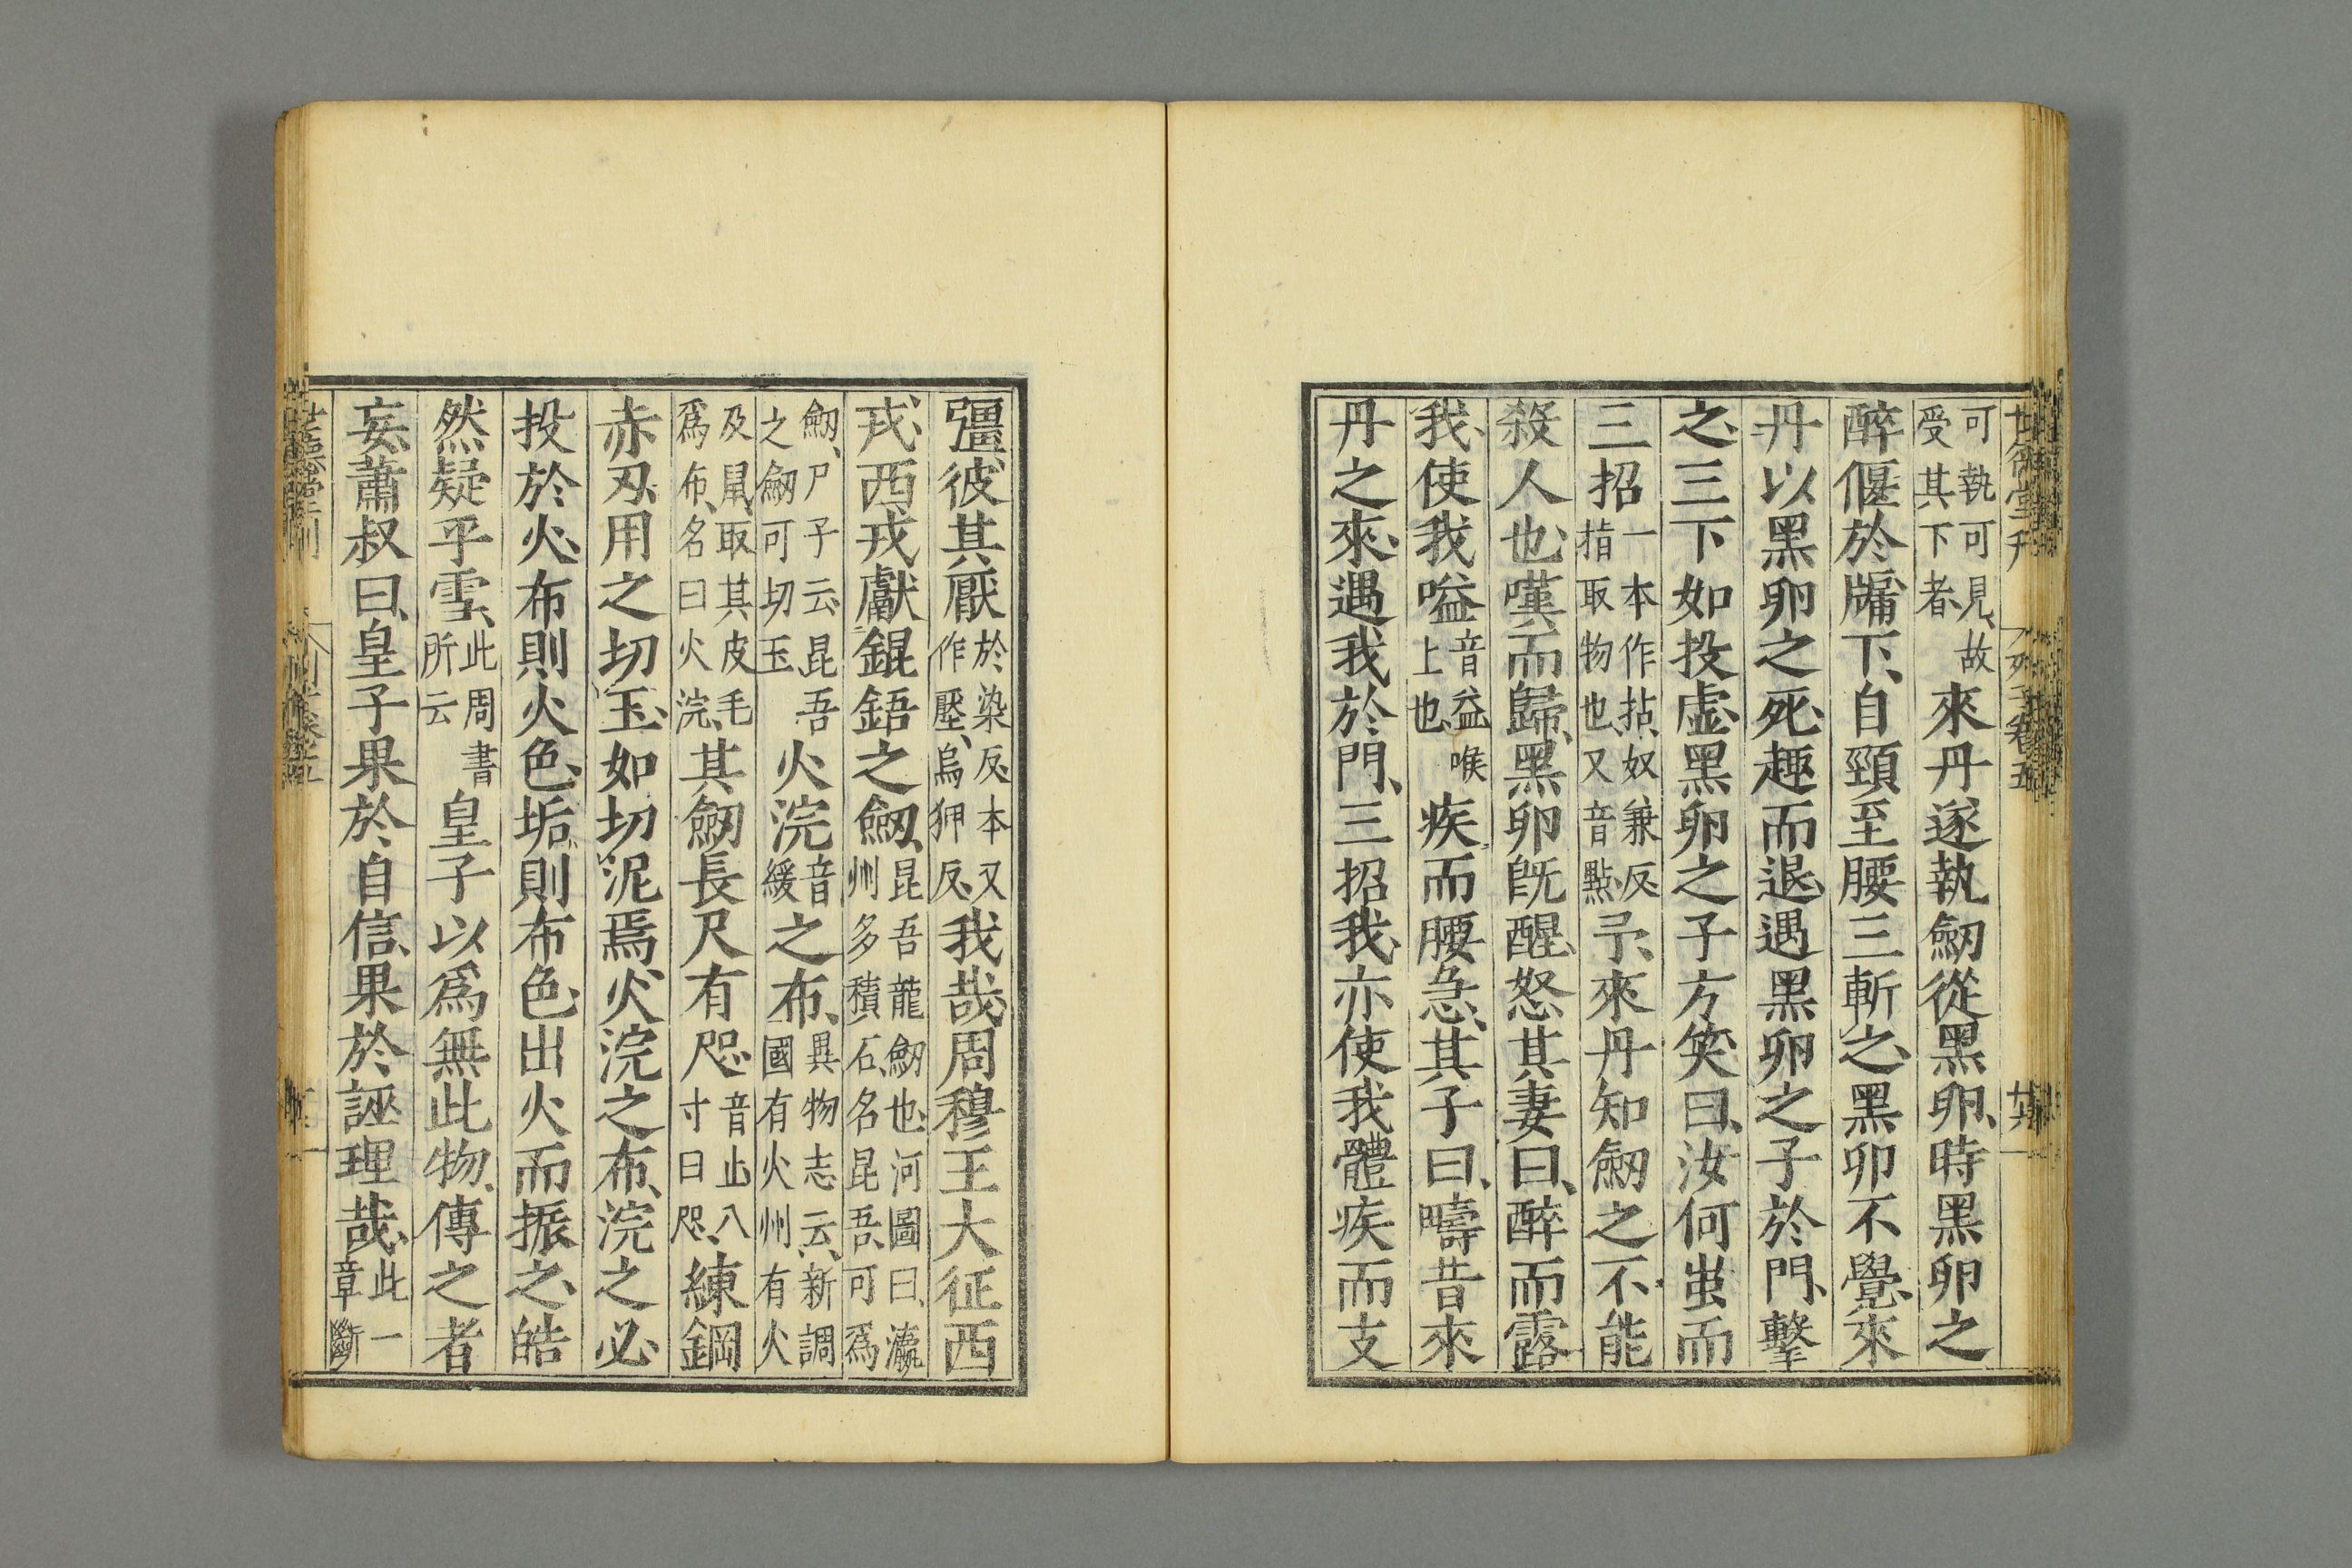 世德堂刊
列子卷五
廿六
可執可見、故
受其下者、
來丹遂執劒從黑卵、時黑卵之
醉偃於牖下、自頸至腰三斬之、黑卯不覺、來
丹以黑卵之死、趣而退、遇黑卵之子於門、擊
之、三下如投虛、黑卵之子方笑曰、汝何蚩而
三招
一本作拈、奴兼反、
指取物也、又音點、
予、來丹知劒之不能
殺人也、嘆而歸、黑卵旣醒、怒其妻曰、醉而露
我、使我嗌
音益喉
上也、
疾而腰急、其子曰、疇昔來
丹之來、遇我於門、三招我、亦使我體疾而支
彊、彼其厭
於染反、本又
作壓、烏狎反、
我哉、周穆王大征西
戎、西戎獻錕鋙之劒、
昆吾龍劒也、河圖曰、瀛
州多積石、名昆吾、可爲
劒、尸子云、昆吾
之劒可切玉
火浣
音
緩
之布、
異物志云、新調
國有火州有火
及鼠、取其皮毛
爲布、名曰火浣、
其劒長尺有咫、
音止八
寸曰咫、
練鋼
赤刃、用之切玉、如切泥焉、火浣之布、浣之必
投於火、布則火色、垢則布色、出火而振之、皓
然疑乎雪、
此周書
所云
皇子以爲無此物、傳之者
妄、蕭叔曰、皇子果於自信、果於誣理哉、
此一
章斷